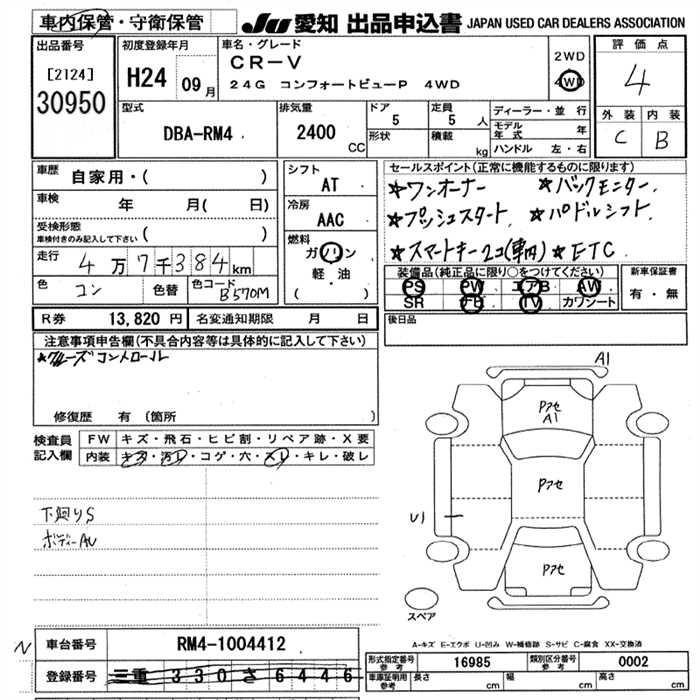 車内保管・守衛保管
JU 愛知 出品申込書 JAPAN USED CAR DEALERS ASSOCIATION
出品番号
[2124]
30950
初度登録年月
H24 09月
車名・グレード
CR-V
24G コンフォートビューP 4WD
2WD
4WD
評価点
4
外装 内装
C B
型式
DBA-RM4
排気量
2400
CC
ドア
5
形状
定員
5 人
積載
kg
ディーラー・並行
モデル年式 年
ハンドル 左・右
車歴
自家用・( )
車検 年 月( 日)
受検形態
車検付きのみ記入して下さい ( )
走行 4万7千384km
色 コン 色替 色コード B570M
シフト
AT
冷房
AAC
燃料
ガソリン
軽・油
( )
セールスポイント(正常に機能するものに限ります)
★ワンオーナー ★バックモニター.
★プッシュスタート ★パドルシフト
★スマートキー2コ(車内) ★ETC
装備品(純正品に限り○をつけてください)
PS PW エアB AW
SR ナビ TV カワシート
新車保証書
有・無
後日品
R券 13,820円 名変通知期限 月 日
注意事項申告欄(不具合内容等は具体的に記入して下さい)
★クルーズコントロール
修復歴 有(箇所 )
検査員記入欄
FW キズ・飛石・ヒビ割・リペア跡・X要
内装 キズ・汚レ・コゲ・穴・スレ・キレ・破レ
下廻りS
ボディーAU
A1
Pアセ
A1
Pアセ
U1
Pアセ
スペア
A-キズ E-エクボ U-凹み W-補修跡 S-サビ C-腐食 XX-交換済
N
車台番号 RM4-1004412
登録番号 三重 330 さ 6446
形式指定番号 参考 16985 類別区分番号 参考 0002
車庫証明用 参考 長さ cm 幅 cm 高さ cm